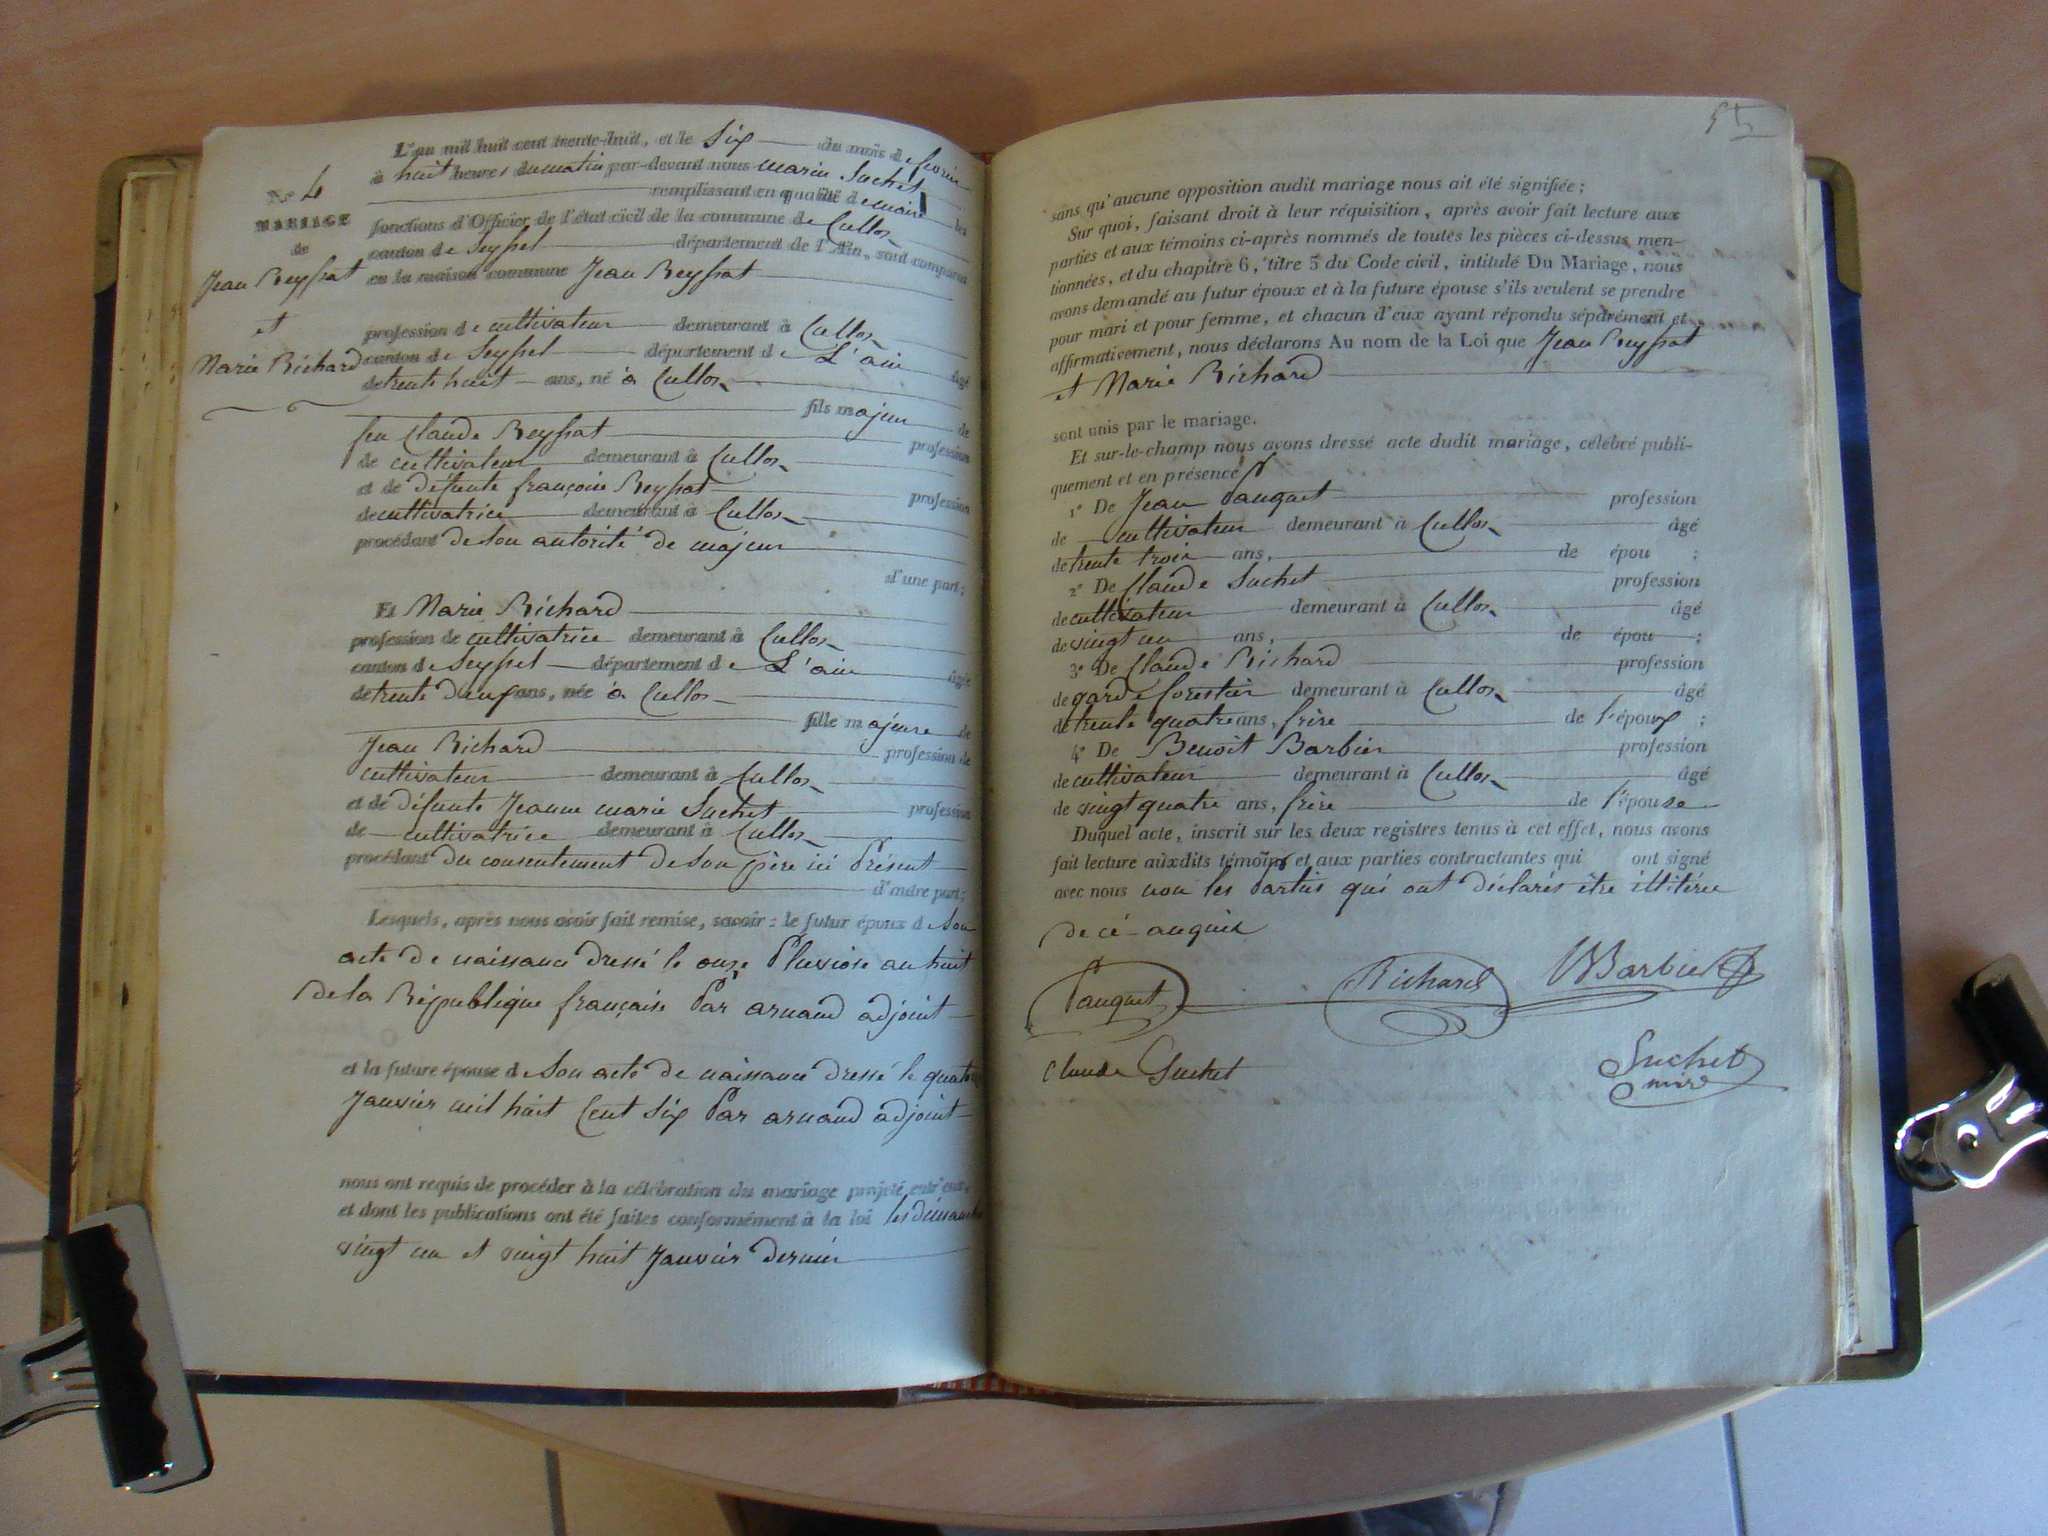 N° 4
MARIAGE
de
Jean Reyssat
et
Marie Richard
L'an mil huit cent trente-huit, et le six du mois de février
à huit heures du matin par-devant nous marin Suchet
remplissant en qualité de maire les
fonctions d'Officier de l'état civil de la commune de Culloz
canton de Seyssel département de l'Ain, sont comparus
en la maison commune Jean Reyssat
profession de cultivateur demeurant à Culloz
canton de Seyssel département de L'ain âgé
de trente huit ans, né à Culloz
fils majeur de
feu Claude Reyssat profession
de cultivateur demeurant à Culloz
et de défunte françoise Reyssat profession
de cultivatrice demeurant à Culloz
procédant de son autorité de majeur
d'une part;
Et Marie Richard
profession de cultivatrice demeurant à Culloz
canton de Seyssel département de L'ain âgée
de trente deux ans, née à Culloz
fille majeure de
Jean Richard profession de
cultivateur demeurant à Culloz
et de défunte Jeanne marie Suchet profession
de cultivatrice demeurant à Culloz
procédant du consentement de son père ici Présent
d'autre part;
Lesquels, après nous avoir fait remise, savoir : le futur époux de son
acte de naissance dressé le onze Pluviose an huit
de la République française Par arnaud adjoint
et la future épouse de son acte de naissance dressé le quatorze
Janvier mil huit Cent six Par arnaud adjoint
nous ont requis de procéder à la célébration du mariage projeté entr'eux,
et dont les publications ont été faites conformément à la loi les dimanches
vingt un et vingt huit Janvier dernier
sans qu'aucune opposition audit mariage nous ait été signifiée ;
Sur quoi, faisant droit à leur réquisition, après avoir fait lecture aux
parties et aux témoins ci-après nommés de toutes les pièces ci-dessus men-
tionnées, et du chapitre 6, titre 5 du Code civil, intitulé Du Mariage, nous
avons demandé au futur époux et à la future épouse s'ils veulent se prendre
pour mari et pour femme, et chacun d'eux ayant répondu séparément et
affirmativement, nous déclarons Au nom de la Loi que Jean Reyssat
et Marie Richard
sont unis par le mariage.
Et sur-le-champ nous avons dressé acte dudit mariage, célébré publi-
quement et en présence
1° De Jean Pauquet profession
de cultivateur demeurant à Culloz âgé
de trente trois ans, de épou ;
2° De Claude Suchet profession
de cultivateur demeurant à Culloz âgé
de vingt un ans, de épou ;
3° De Claude Richard profession
de garde forestier demeurant à Culloz âgé
de trente quatre ans, frère de l'époux ;
4° De Benoit Barbier profession
de cultivateur demeurant à Culloz âgé
de vingt quatre ans, frère de l'épouse
Duquel acte, inscrit sur les deux registres tenus à cet effet, nous avons
fait lecture auxdits témoins et aux parties contractantes qui ont signé
avec nous non les Parties qui ont déclarés être illitérés
de ce anquis
Pauquet Richard Barbier
Claude Suchet Suchet
mire